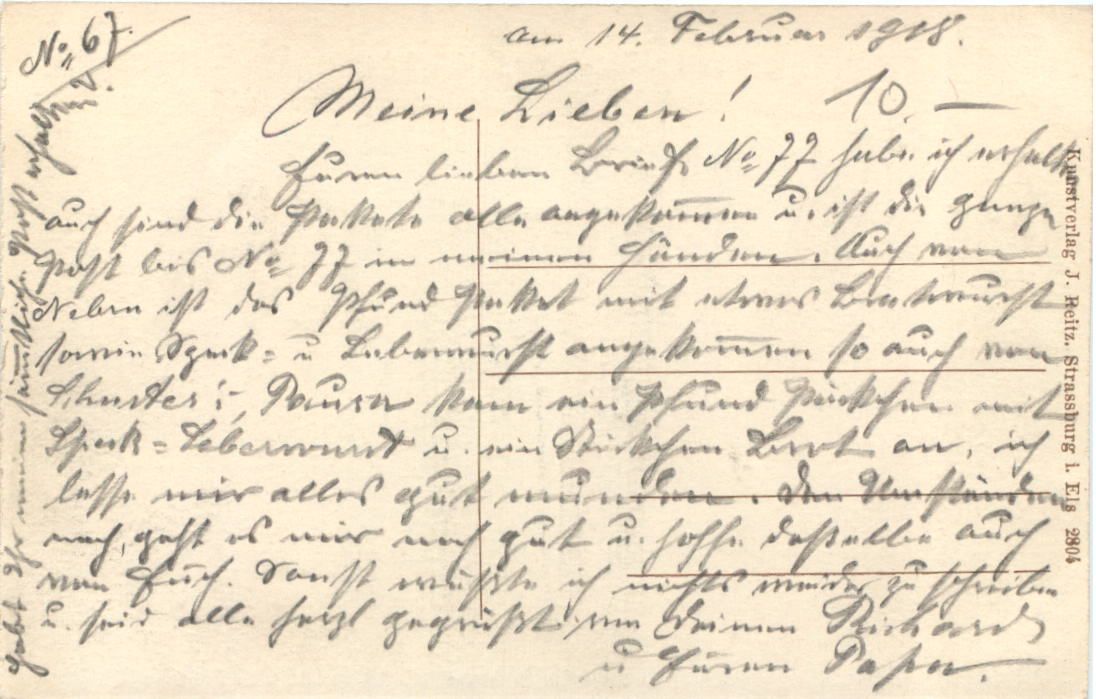 No. 67.
am 14. Februar 1918.
Meine Lieben! 10.—
Euren lieben Brief No. 77 habe ich erhalten
auch sind die Pakete alle angekommen u. ist die ganze
Post bis No. 77 in meinen Händen. Auch von
ist das Pfund Paket mit etwas Bratwurst
sowie Speck= u Leberwurst angekommen so auch von
Schuster's, Pausa kam ein Pfund Päckchen mit
Speck=Leberwurst u. ein Stückchen Brot an, ich
lasse mir alles gut munden. Den Umständen
nach, geht es mir noch gut u. hoffe dasselbe auch
von Euch. Sonst wüßte ich nichts weiter zu schreiben
u. seid alle herzl gegrüßt von Deinen Richard
u Euren Papa.
Habt Ihr meine sämtliche Post erhalten?
Kunstverlag J. Reitz. Strassburg i. Els 2804